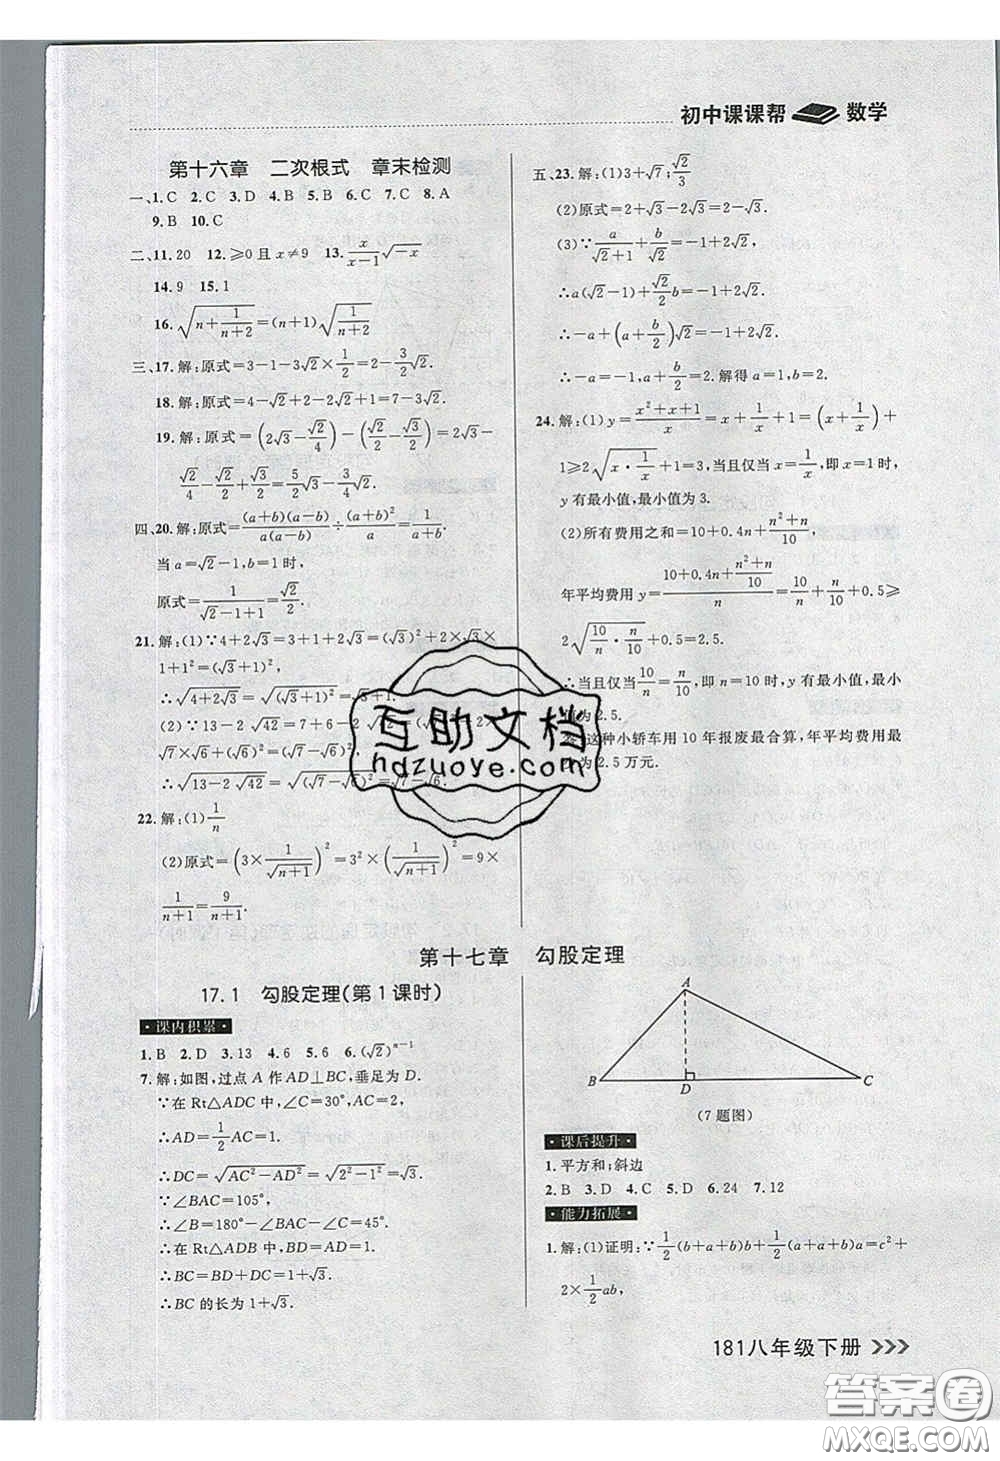 初中课课帮 数学
第十六章 二次根式 章末检测
一、1.C 2.C 3.D 4.B 5.B 6.C 7.C 8.A
9.B 10.C
二、11.20 12.≥0且x≠9 13.x/(x-1)√(-x)
14.9 15.1
16.√(n+1/(n+2))=(n+1)√(1/(n+2))
三、17.解:原式=3-1-3√2×1/2=2-3/2√2.
18.解:原式=4-√2+2-2√2+1=7-3√2.
19.解:原式=(2√3-√2/4)-(√2/2-√3/2)=2√3-
√2/4-√2/2+√3/2=5/2√3-3/4√2.
四、20.解:原式=(a+b)(a-b)/a(a-b)÷(a+b)²/a=1/(a+b).
当a=√2-1,b=1时,
原式=1/(√2-1+1)=√2/2.
21.解:(1)∵4+2√3=3+1+2√3=(√3)²+2×√3×
1+1²=(√3+1)²,
∴√(4+2√3)=√((√3+1)²)=√3+1.
(2)∵13-2√42=7+6-2√42=(√7)²-2×
√7×√6+(√6)²=(√7-√6)²,
∴√(13-2√42)=√((√7-√6)²)=√7-√6.
22.解:(1)1/n
(2)原式=(3×1/√(n+1))²=3²×(1/√(n+1))²=9×
1/(n+1)=9/(n+1).
五、23.解:(1)3+√7;√2/3
(2)原式=2+√3-2√3=2-√3.
(3)∵a/(√2+1)+b/√2=-1+2√2,
∴a(√2-1)+√2/2b=-1+2√2.
∴-a+(a+b/2)√2=-1+2√2.
∴-a=-1,a+b/2=2.解得a=1,b=2.
24.解:(1)y=(x²+x+1)/x=x+1/x+1=(x+1/x)+
1≥2√(x·1/x)+1=3,当且仅当x=1/x,即x=1时,
y有最小值,最小值为3.
(2)所有费用之和=10+0.4n+(n²+n)/10,
年平均费用y=(10+0.4n+(n²+n)/10)/n=10/n+n/10+0.5≥
2√(10/n·n/10)+0.5=2.5.
∴当且仅当10/n=n/10,即n=10时,y有最小值,最小
值为2.5.
答:这种小轿车用10年报废最合算,年平均费用最
为2.5万元.
互助文档
hdzuoye.com
第十七章 勾股定理
17.1 勾股定理(第1课时)
·课内积累·
1.B 2.D 3.13 4.6 5.6 6.(√2)ⁿ⁻¹
7.解:如图,过点A作AD⊥BC,垂足为D.
∵在Rt△ADC中,∠C=30°,AC=2,
∴AD=1/2AC=1.
∴DC=√(AC²-AD²)=√(2²-1²)=√3.
∵∠BAC=105°,
∴∠B=180°-∠BAC-∠C=45°.
∴在Rt△ADB中,BD=AD=1.
∴BC=BD+DC=1+√3.
∴BC的长为1+√3.
A
B D C
(7题图)
·课后提升·
1.平方和;斜边
2.B 3.D 4.C 5.D 6.24 7.12
·能力拓展·
1.解:(1)证明:∵1/2(b+a+b)b+1/2(a+a+b)a=c²+
2×1/2ab,
181八年级下册 >>>
答案圈
MXQE.COM